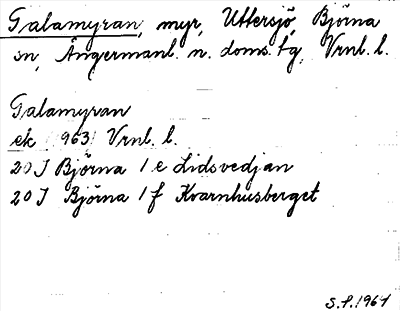 Galamyran, myr, Uttersjö, Björna
sn, Ångermanl. n. doms. tg, Vrnl. l.
Galamyran
ek 1963 Vrnl. l.
20 J Björna 1 e Lidsvedjan
20 J Björna 1 f Kvarnhusberget
S.S. 1964